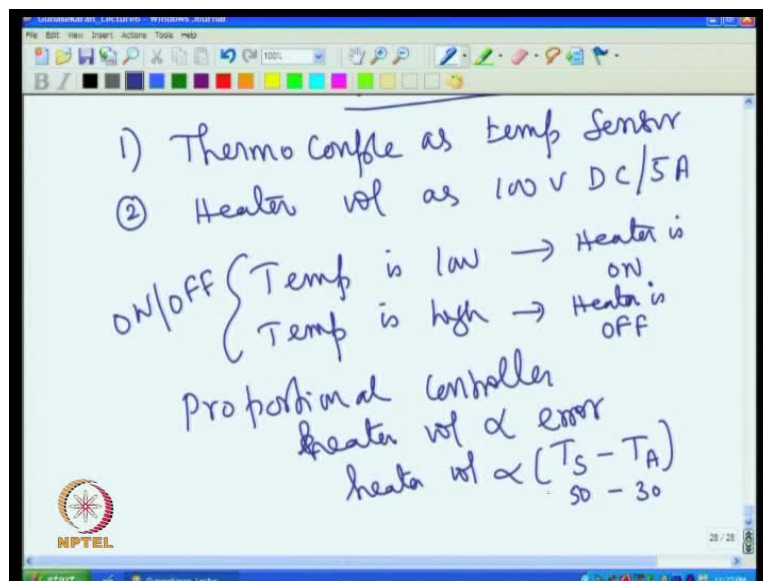 Gunasekaran_Lecture6 - Windows Journal
File Edit View Insert Actions Tools Help
100%
B I
1) Thermo Couple as temp Sensor
② Heater vol as 100 V DC/5A
ON/OFF { Temp is low → Heater is ON
Temp is high → Heater is OFF
Proportional Controller
heater vol ∝ error
heater vol ∝ (TS - TA)
50 - 30
NPTEL
28 / 28
start